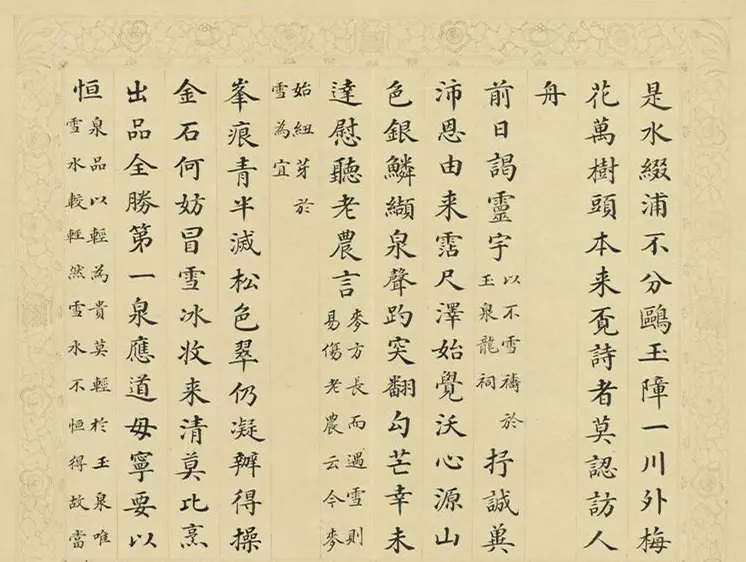 是水綴浦不分鷗玉障一川外梅
花萬樹頭本来覔詩者莫認訪人
舟
前日謁靈宇以不雪禱於玉泉龍祠抒誠兾
沛恩由来霑尺澤始覺沃心源山
色銀鱗纈泉聲趵突翻勾芒幸未
達慰聽老農言麥方長而遇雪則易傷老農云今麥
始紐芽於雪為宜
峯痕青半滅松色翠仍凝辦得操
金石何妨冒雪冰收来清莫比烹
出品全勝第一泉應道毋寧要以
恒泉品以輕為貴莫輕於玉泉唯雪水較輕然雪水不恒得故當